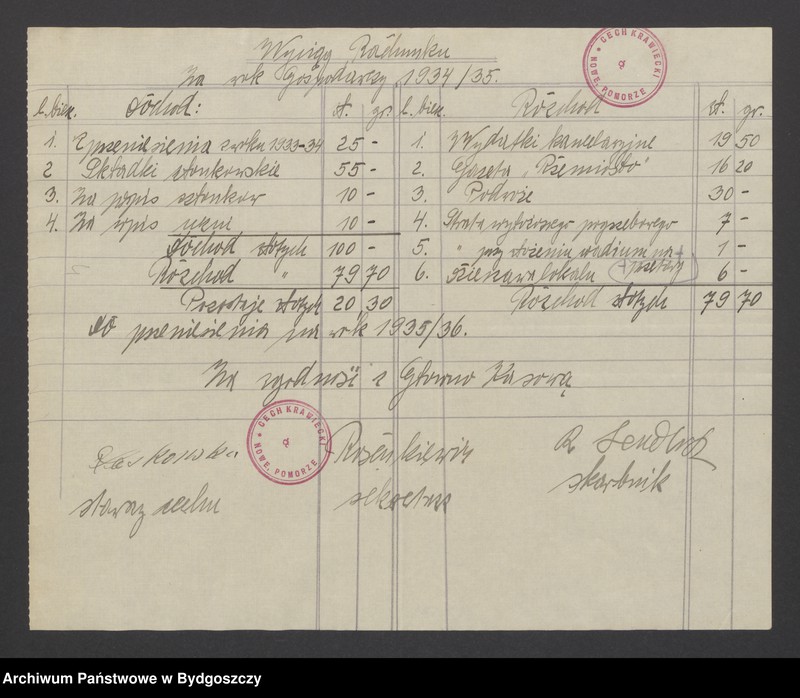 Wyciąg Rachunku
Za rok Gospodarczy 1934/35.
CECH KRAWIECKI
NOWE, POMORZE
L. bież. Dochod: zł. gr. L. bież. Rozchod zł. gr.
1. Z przeniesienia z roku 1933-34 25 - 1. Wydatki kancelaryjne 19 50
2 Składki członkowskie 55 - 2. Gazeta „Rzemiosło" 16 20
3. Za popis członkow 10 - 3. Podróże 30 -
4. Za wpis uczni 10 - 4. Strata 7 -
Dochod złotych 100 - 5. " przy złożeniu wadium na 1 -
Rozchod " 79 70 6. lokalu 6 -
Pozostaje złotych 20 30 Rozchod złotych 79 70
do przeniesienia na rok 1935/36.
Za zgodność z Głowno Kasową
CECH KRAWIECKI
NOWE, POMORZE
R
sekretarz skarbnik
Archiwum Państwowe w Bydgoszczy